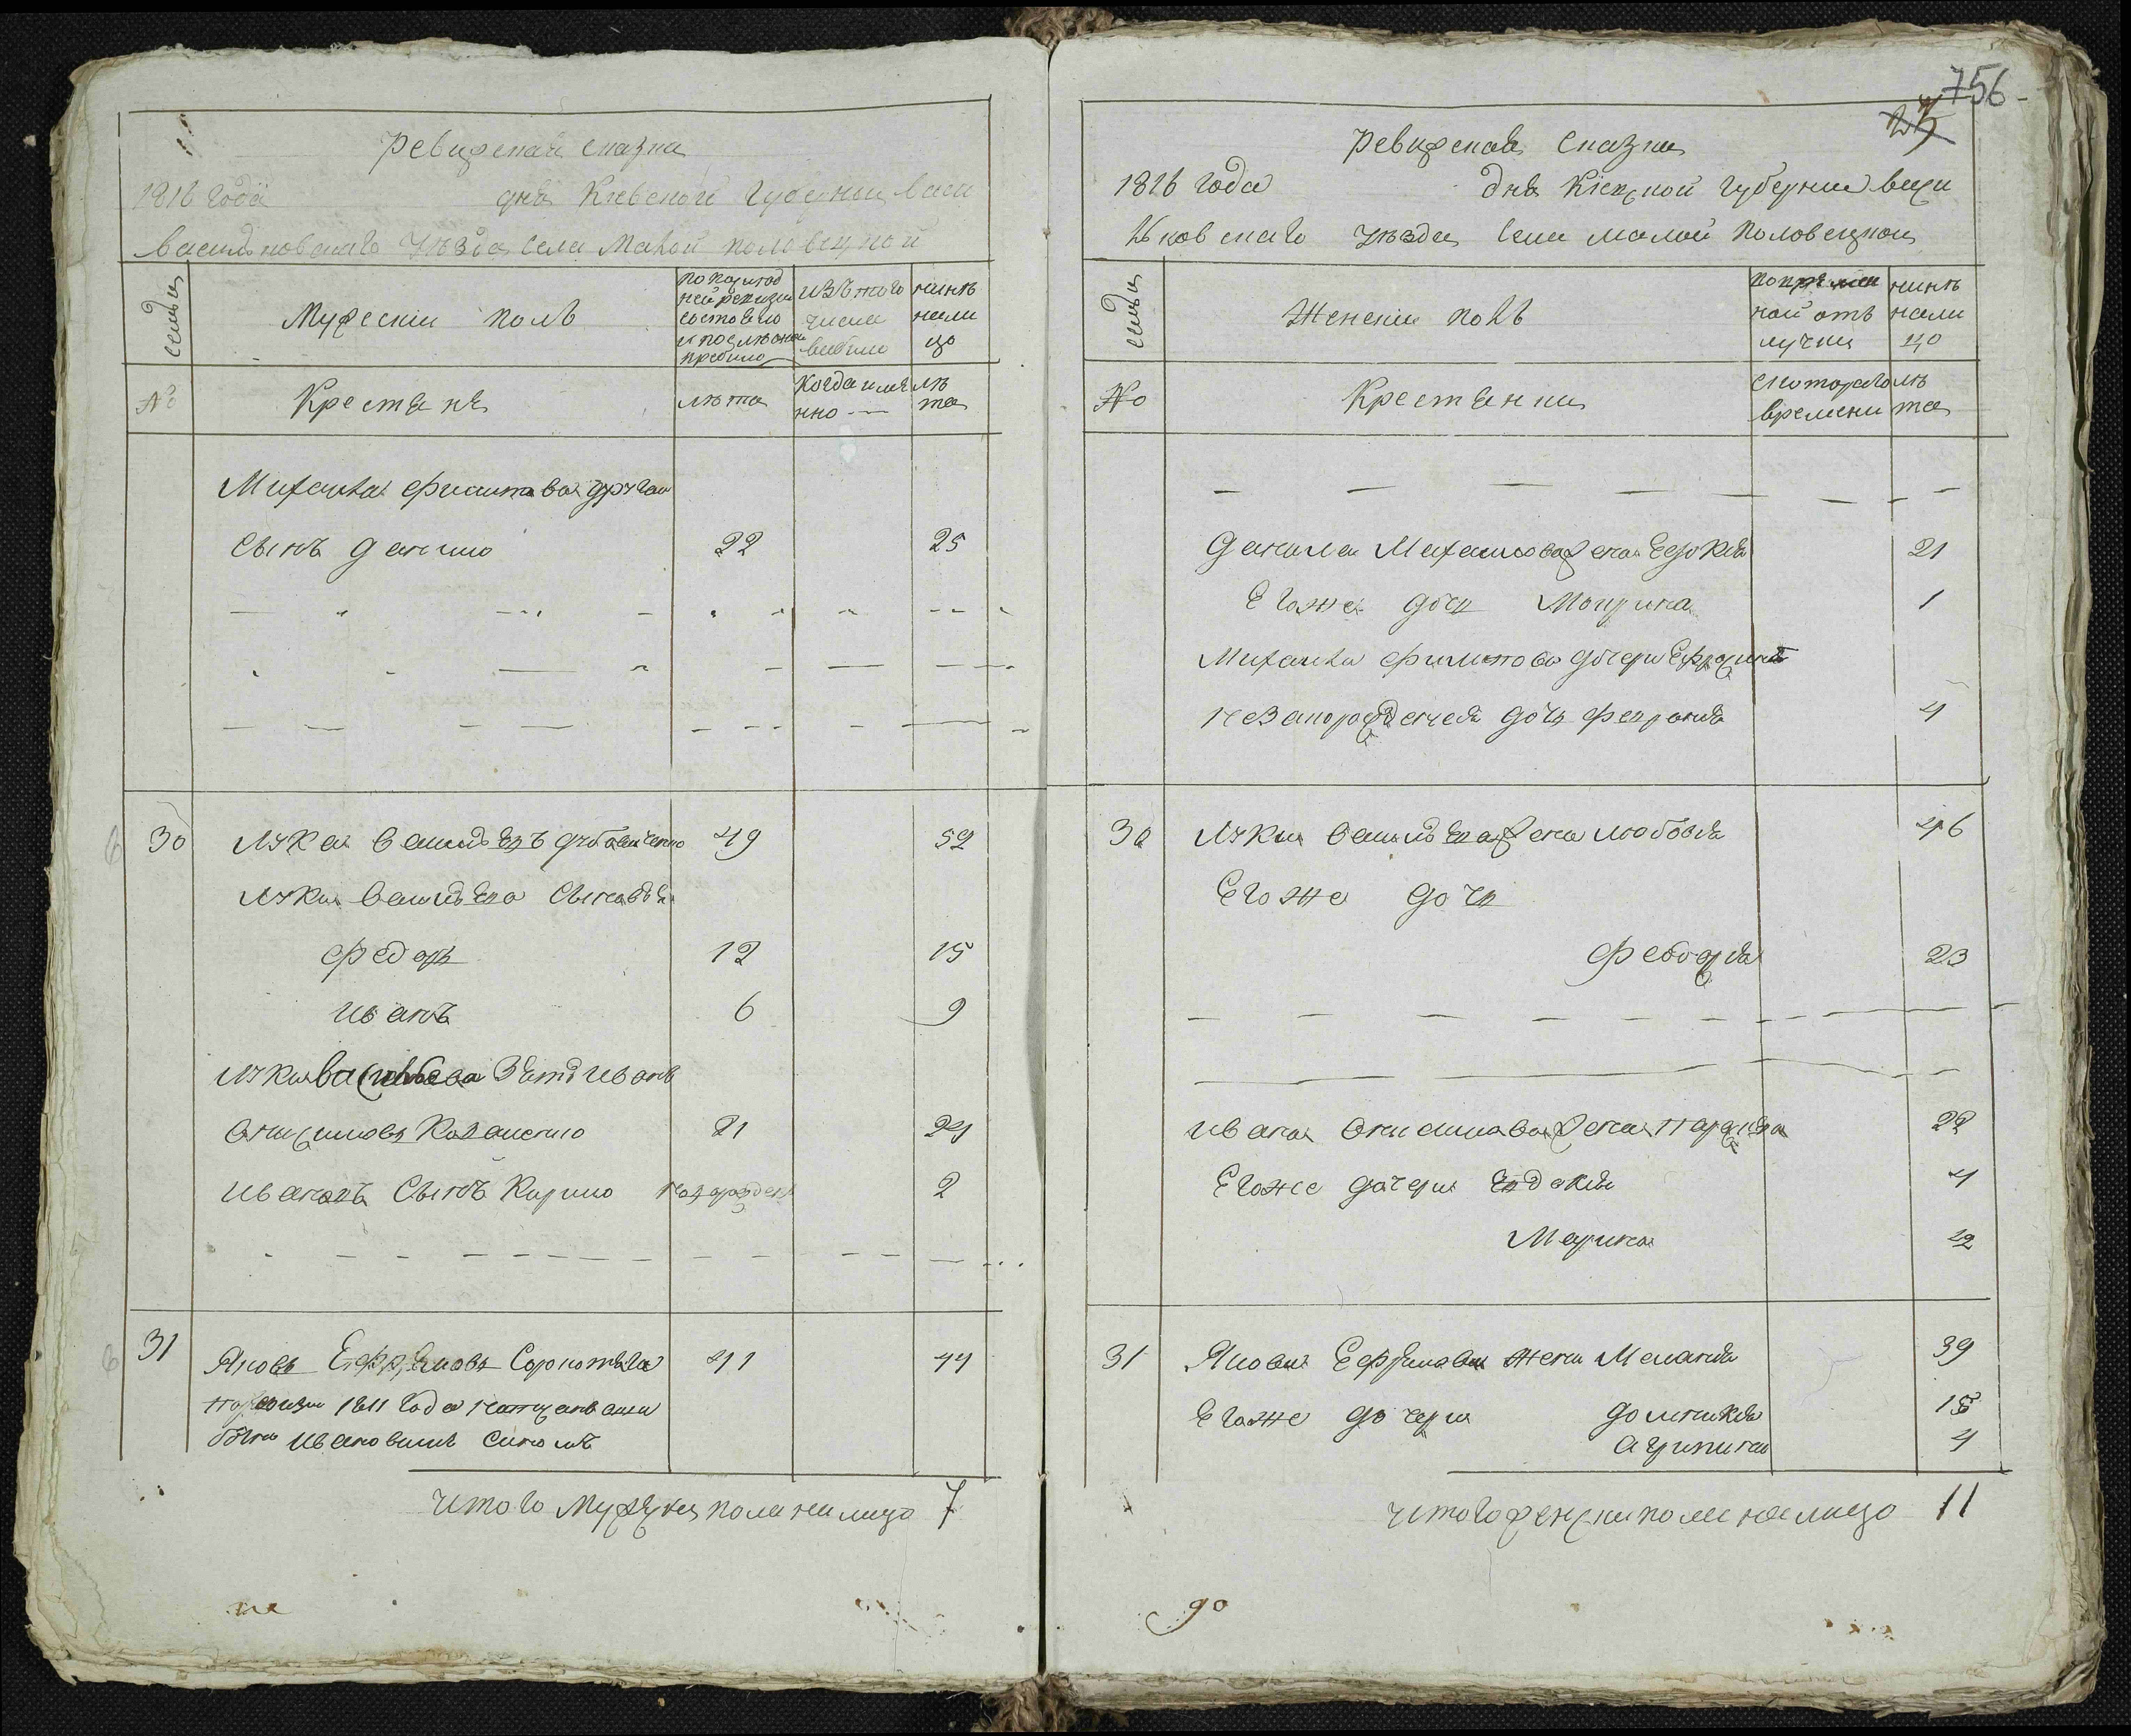 Ревизская сказка
1816 года дня Киевской Губернии Васи
Васильковскаго Уезда Села Малой Половецкой
семьи
Мужеский полъ
по последней ревизии состояло и после оной прибыло
изъ того числа выбыло
ныне на лицо
№
Крестьяне
лѣта
Когда именно
лѣта
Михаила Филипова другой
Сынъ Данило 22 25
30 Лука Васильевъ 49 52
Луки Васильева Сыновья
Федоръ 12 15
Иванъ 6 9
Луки Васильева Зять Иванъ
Онисимовъ 21 24
Ивановъ Сынъ Кирило новорожденъ 2
31 Яковъ Ефремовъ Сорокотяга 41 44
1811 года написанъ
Ивановымъ Сыномъ
Итого Мужеска пола на лицо 7
на
756
Ревизская Сказка
1816 года дня Киевской Губернии Васи
льковскаго Уѣзда Села Малой Половецкой
семьи
Женский полъ
во временной отлучки
ныне на лицо
№
Крестьянки
с котораго времени
лѣта
Данила Михаилова жена Евдокия 21
Егоже дочь Мотрина 1
Михаила Филипова дочери
дочь Феврония 4
30 Луки Васильева жена Любовья 46
Егоже дочь
Феодора 23
Ивана Онисимова жена Параска 22
Егоже дочери Евдокия 4
Марина 2
31 Якова Ефремова жена Мелания 39
Егоже дочери Домникия 15
Агрипина 4
Итого женска пола на лицо 11
до